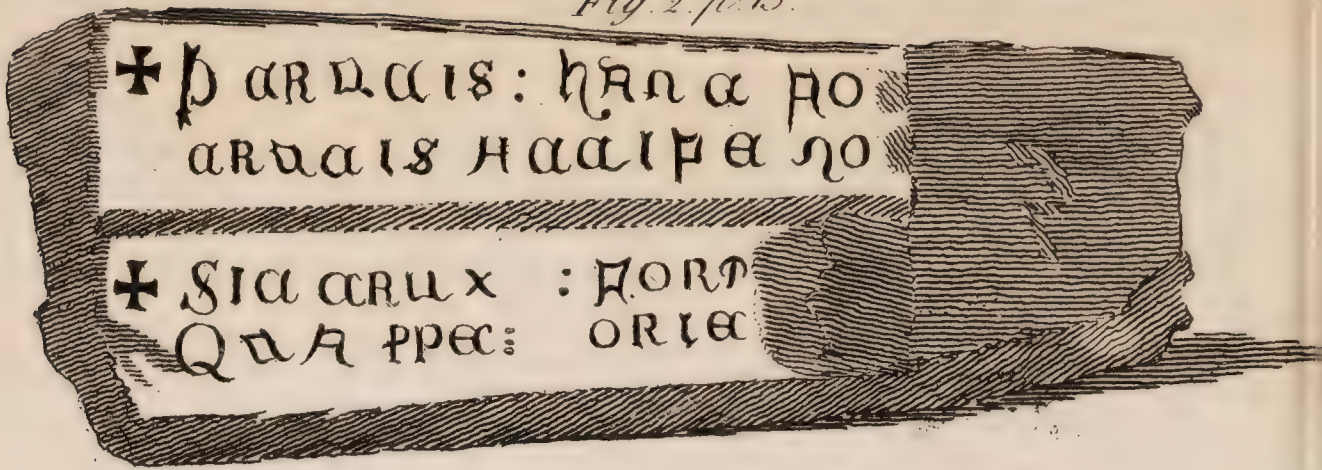 Fig. 2. p. 13.
✠ P CRUCIS : HANC
CRUCIS ACCIPE NO
✠ SIC CRUX :
QUA PPE: ORIE